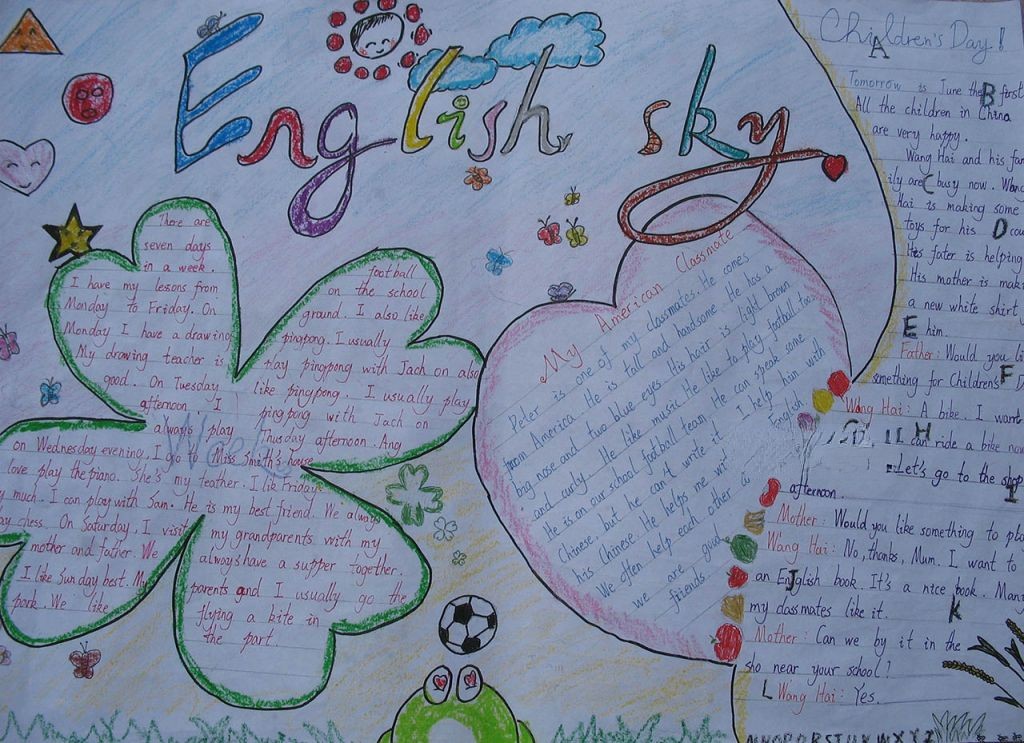 English sky
There are
seven days
in a week.
I have my lessons from
Monday to Friday. On
Monday I have a drawing
My drawing teacher is
good. On Tuesday
afternoon. I
always play
football
on the school
ground. I also like
pingpong. I usually
play pingpong with Jach on also
like pingpong. I usually play
pingpong with Jach on
Thusday afternoon. Ang
on Wednesday evening, I go to Miss Smith's house
love play the piano. She's my teather. I lik Friday
much. I can play with Sam. He is my best friend. We always
chess. On Saturday, I visit my grandparents with my
mother and father. We always have a supper together.
I like Sunday best. My parents and I usually go the
park. We like flying a kite in
the part.
My American Classmate
Peter is one of my classmates. He comes
from America. He is tall and handsome. He has a
big nose and two blue eyes. His hair is light brown
and curly. He like music. He like to play football too.
He is on our school football team. He can speak some
Chinese, but he can't write it. I help him with
his Chinese. He helps me wit English
We often help each other
we are good
friends.
Children's Day!
A
Tomorrow is June the B first
All the children in China
are very happy.
Wang Hai and his fam
ily are C busy now. Wang
Hai is making some
toys for his D cou
His fater is helping
His mother is mak
a new white shirt
E him.
Father: Would you li
something for Children's F D
Wang Hai: A bike. I want
H I can ride a bike now
Let's go to the shop
I
afternoon.
Mother: Would you like something to pla
Wang Hai: No, thanks, Mum. I want to
an English book. It's a nice book. Many
J
my classmates like it. K
Mother: Can we by it in the
sho near your school?
L Wang Hai: Yes.
M N O P Q R S T U V W X Y Z